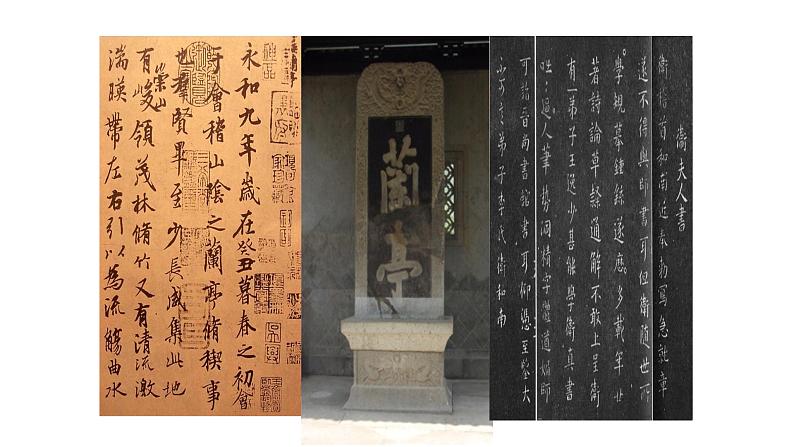 永和九年歲在癸丑暮春之初會
于會稽山陰之蘭亭脩稧事
也群賢畢至少長咸集此地
有崇山峻領茂林脩竹又有清流激
湍暎帶左右引以為流觴曲水
蘭亭
衛夫人書
衛稽首和南近奉勑寫急就章
遂不得與師書耳但衛隨世所
學規摹鍾繇遂歷多載年廿
著詩論草隸通解不敢上呈衛
有一弟子王逸少甚能學衛真書
咄咄逼人筆勢洞精字體遒媚師
可詣晉尚書館書耳仰憑至鑒大
不可言弟子李氏衛和南